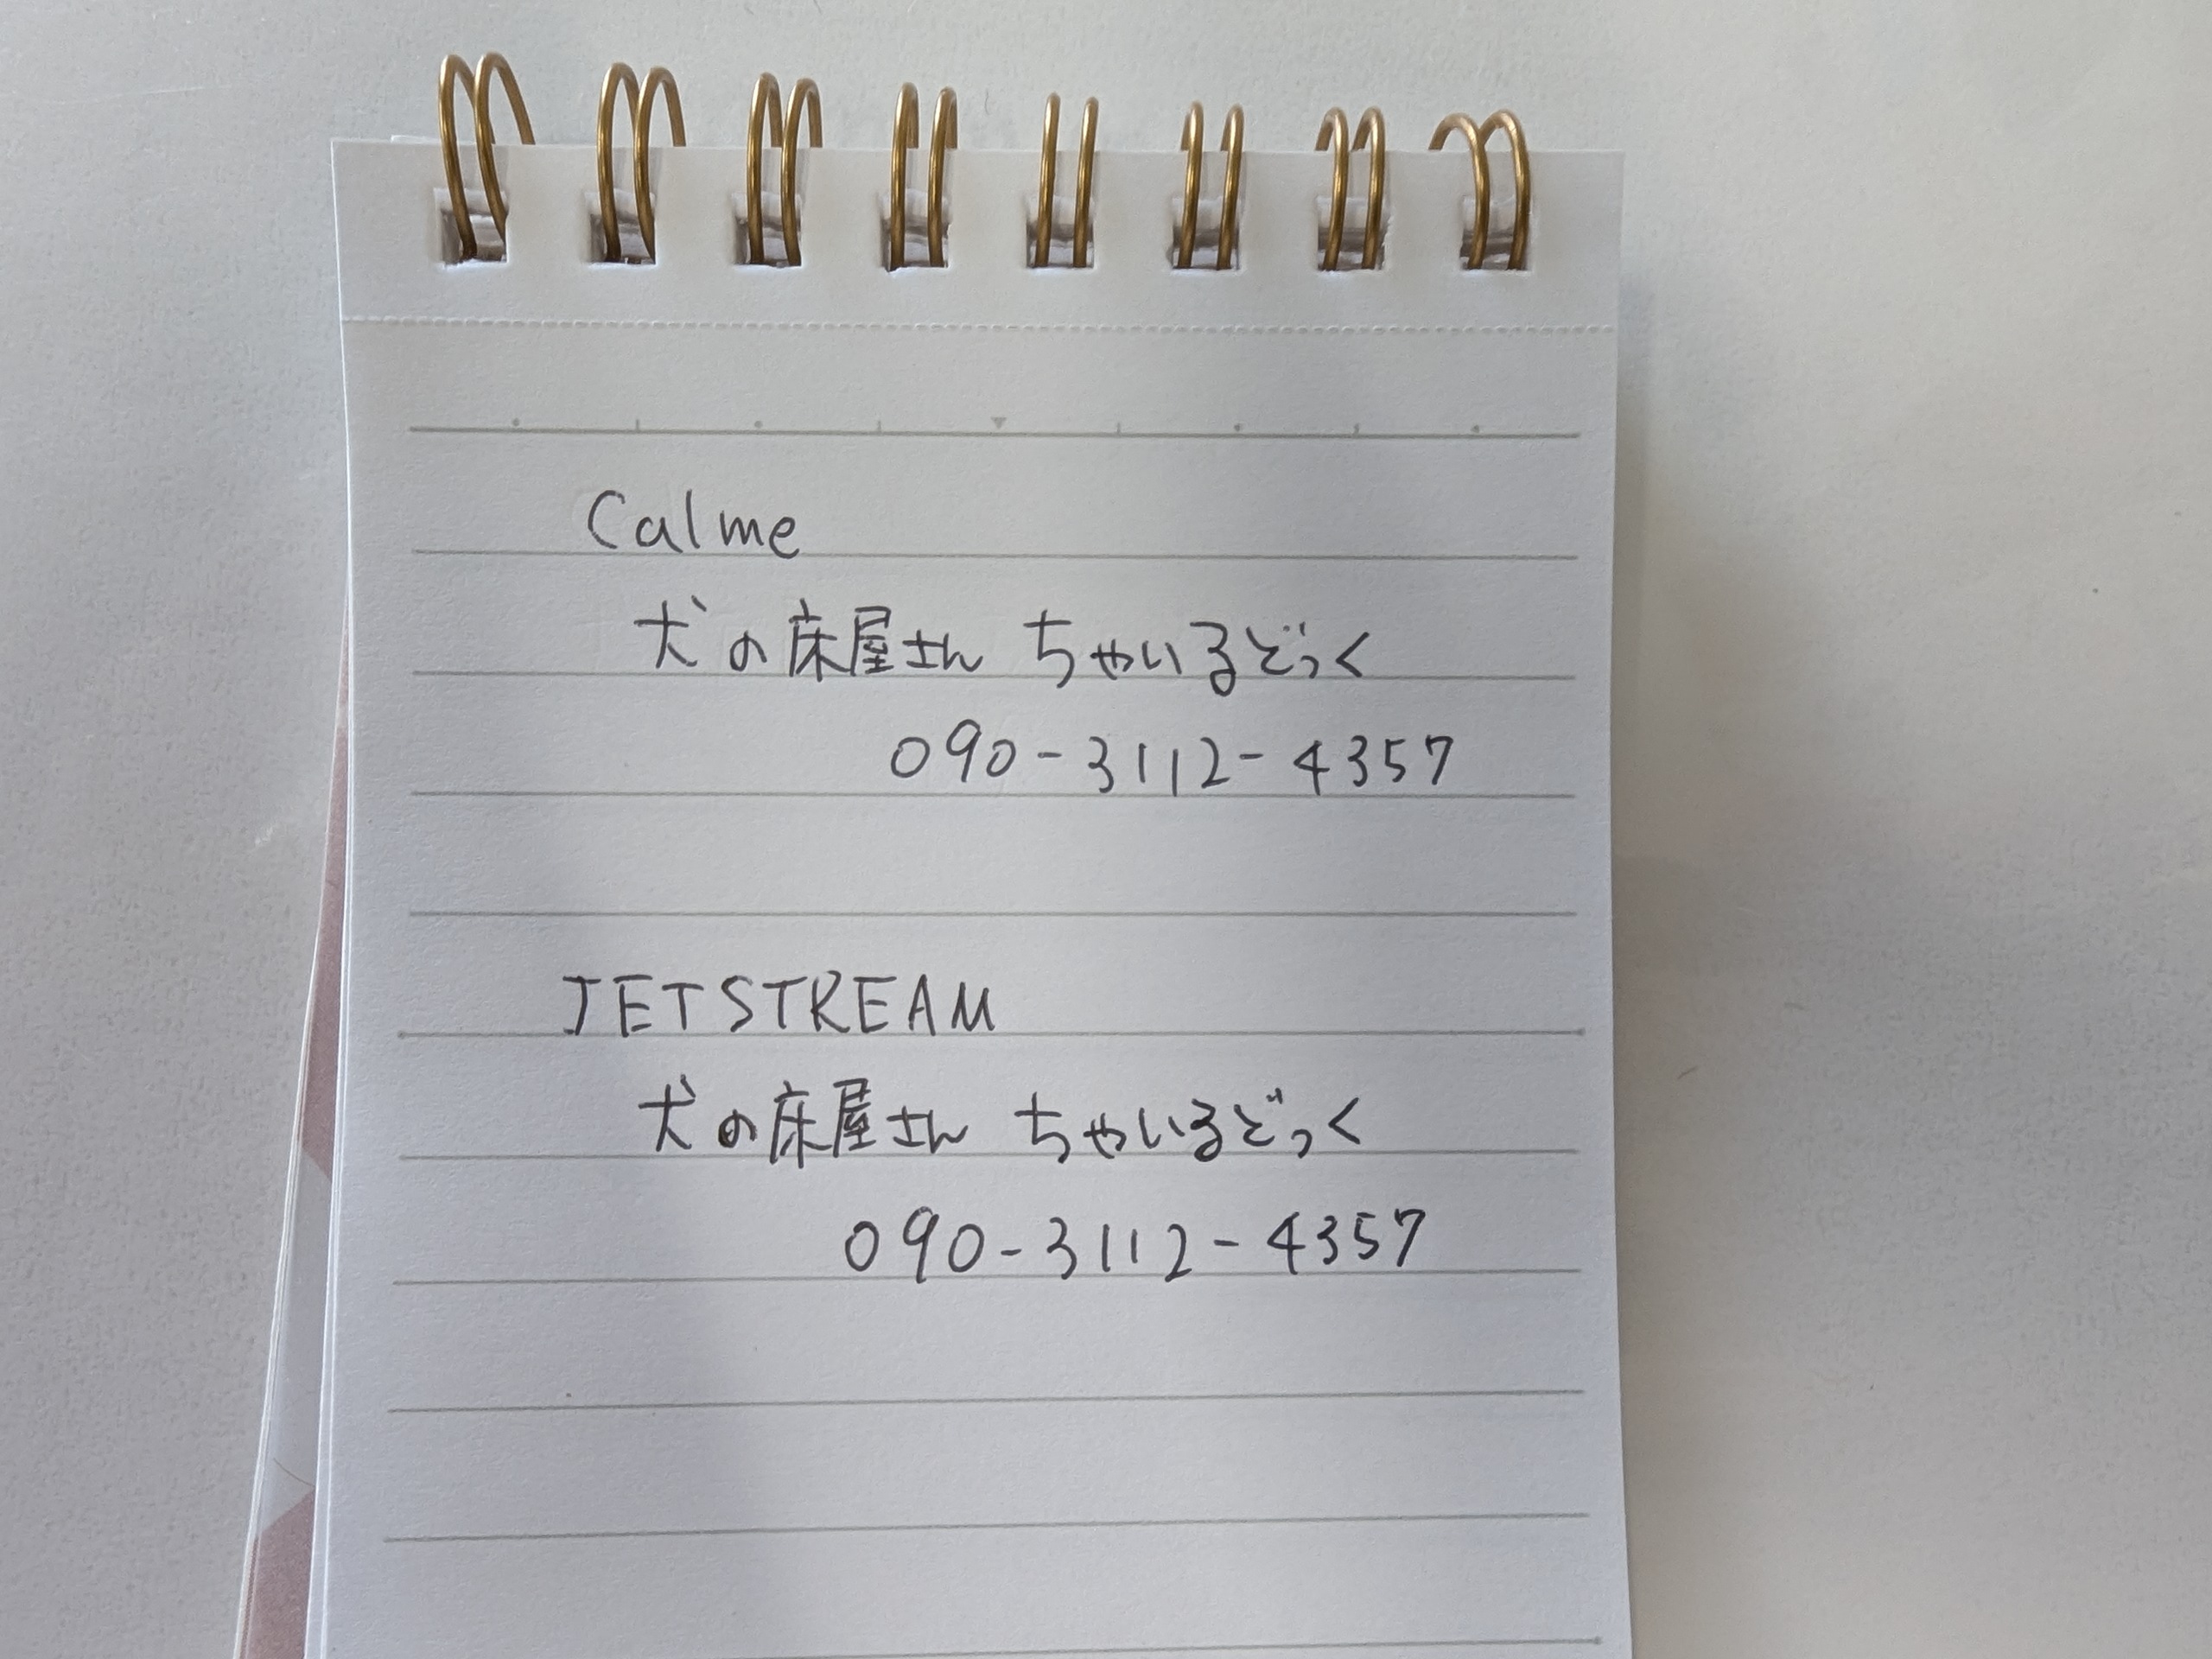 Calme
犬の床屋さん ちゃいるどっく
090-3112-4357
JETSTREAM
犬の床屋さん ちゃいるどっく
090-3112-4357